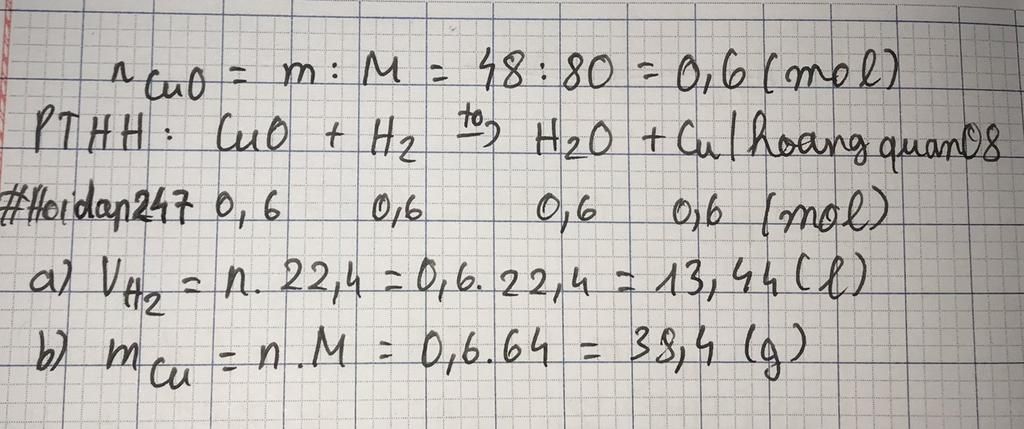 n CuO = m : M = 48 : 80 = 0,6 (mol)
PTHH : CuO + H2 to→ H2O + Cu/hoangquan08
#Hoidap247 0,6 0,6 0,6 0,6 (mol)
a) VH2 = n. 22,4 = 0,6. 22,4 = 13,44 (l)
b) m Cu = n . M = 0,6.64 = 38,4 (g)